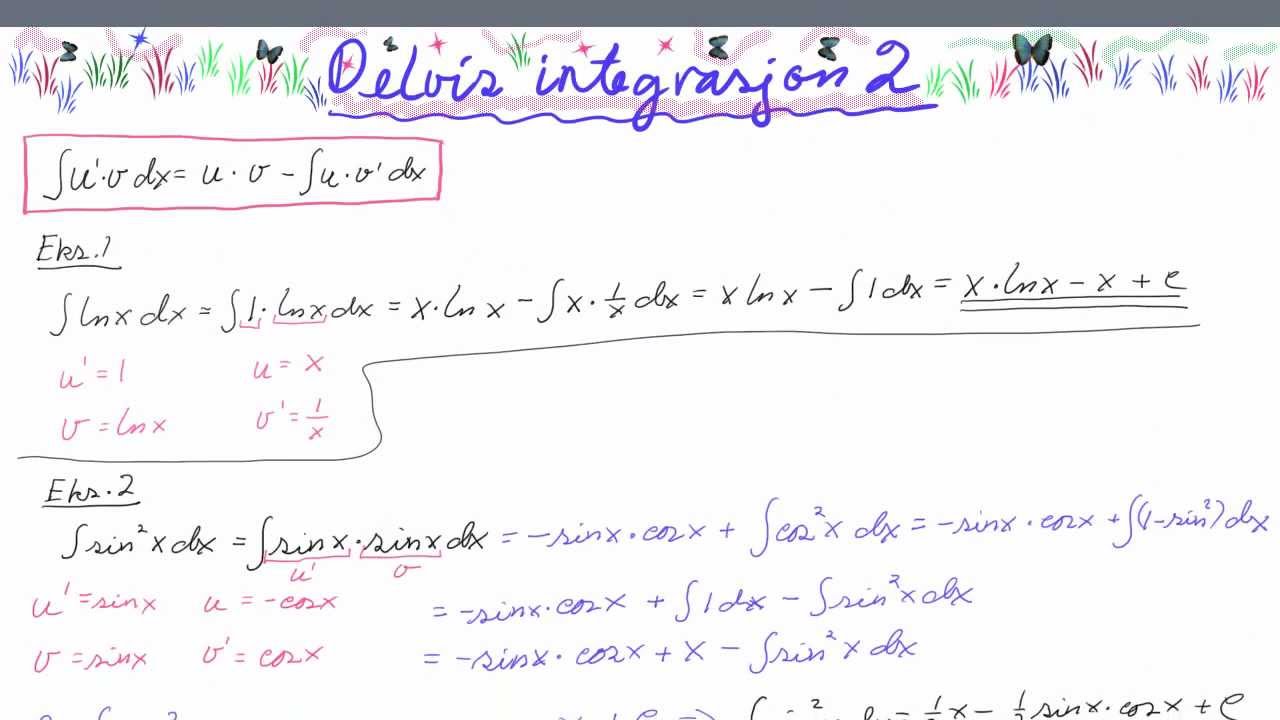 Delvis integrasjon 2
∫u'·v dx = u · v - ∫u·v' dx
Eks.1
∫ln x dx = ∫1·ln x dx = x·ln x - ∫x·1/x dx = x ln x - ∫1 dx = x·ln x - x + C
u' = 1 u = x
v = ln x v' = 1/x
Eks.2
∫sin²x dx = ∫sin x·sin x dx = -sin x·cos x + ∫cos²x dx = -sin x·cos x + ∫(1-sin²) dx
u' v
u' = sin x u = -cos x = -sin x·cos x + ∫1 dx - ∫sin²x dx
v = sin x v' = cos x = -sin x·cos x + x - ∫sin²x dx
= 1/2 x - 1/2 sin x·cos x + C